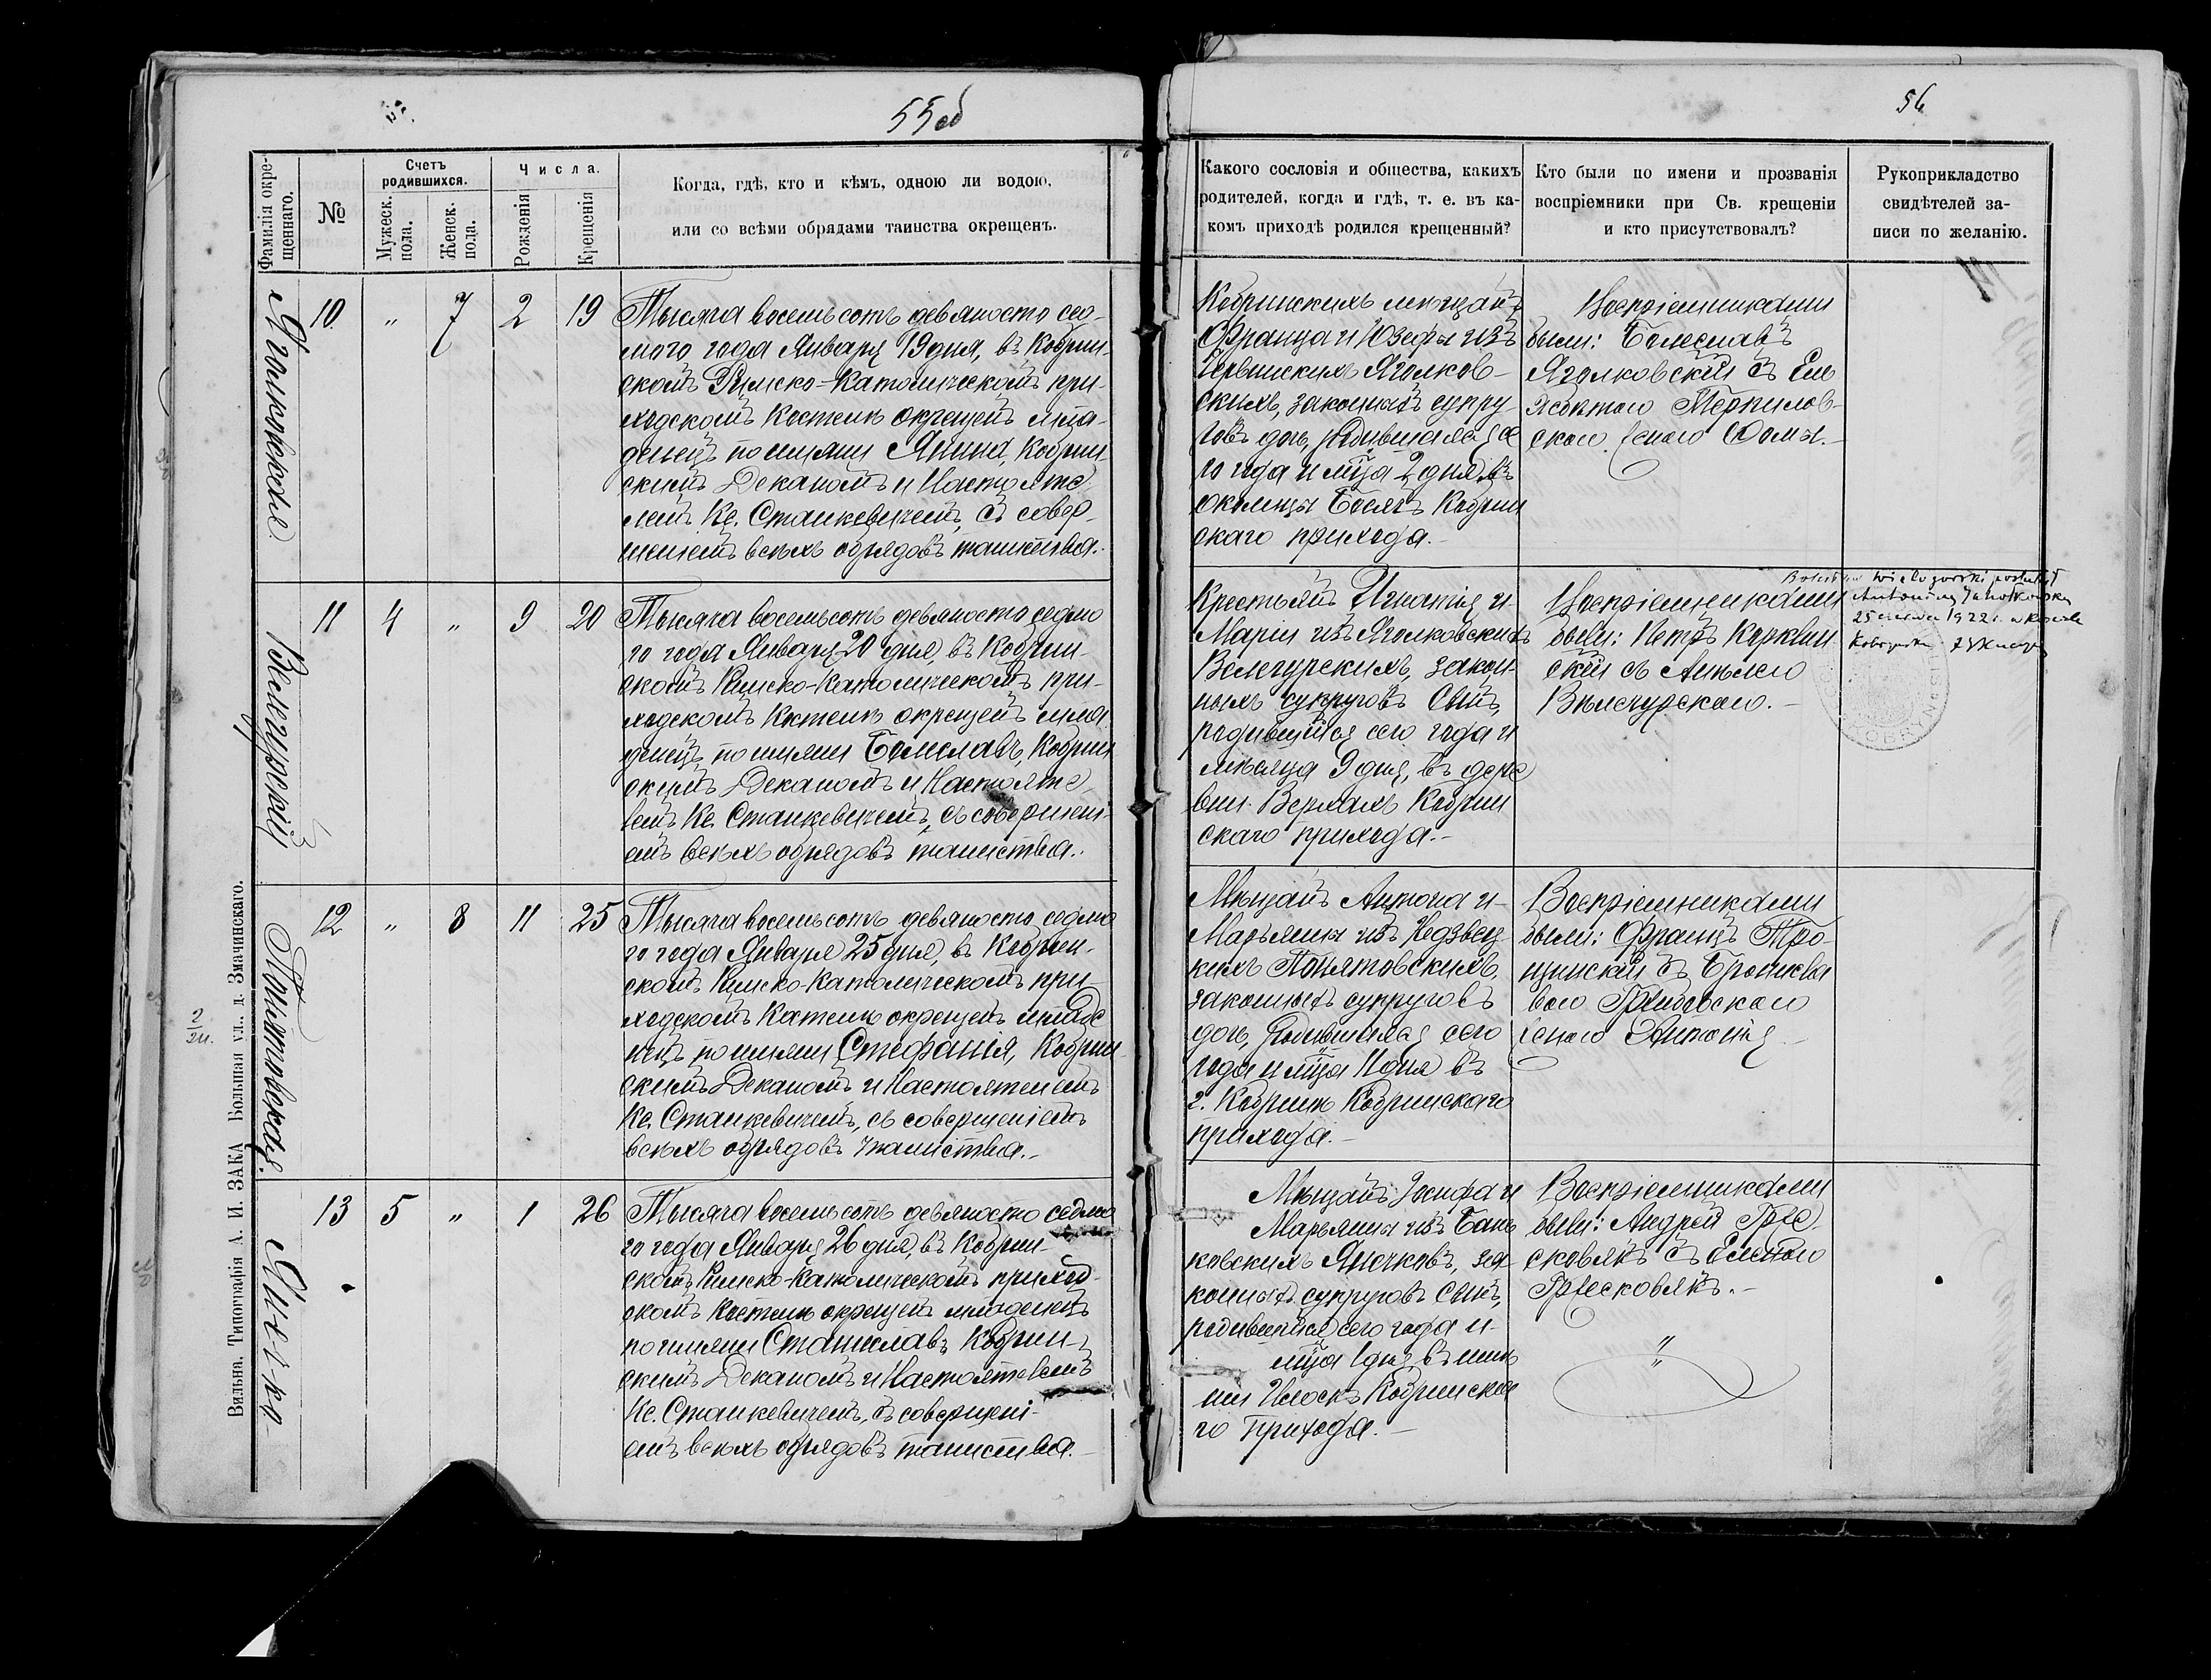 55об
56
Фамилія окре-
щеннаго.
№
Счетъ
родившихся.
Мужеск.
пола.
Женск.
пола.
Числа.
Рожденія
Крещенія
Когда, гдѣ, кто и кѣмъ, одною ли водою,
или со всѣми обрядами таинства окрещенъ.
Какого сословія и общества, какихъ
родителей, когда и гдѣ, т. е. въ ка-
комъ приходѣ родился крещенный?
Кто были по имени и прозванія
воспріемники при Св. крещеніи
и кто присутствовалъ?
Рукоприкладство
свидѣтелей за-
писи по желанію.
Яголковская
10 " 7 2 19
Тысяча восемьсотъ девяносто сед-
мого года Января 19 дня, въ Кобрин-
скомъ Римско-Католическомъ при-
ходскомъ Костелѣ окрещенъ мла-
денецъ по имяни Янина, Кобрин
скимъ Деканомъ и Настояте
лемъ Кс. Станкевичемъ, съ совер-
шеніемъ всѣхъ обрядовъ таинства.
Кобринскихъ мѣщанъ
Франца и Юзефы изъ
Яголков-
скихъ, законныхъ супру-
говъ дочь, родившаяся се
го года и мца 2 дня, въ
околицы Кобрин
скаго прихода.-
Воспріемниками
были: Болеславъ
Яголковскій съ Ели
заветою
скою
Велегурскій
11 4 " 9 20
Тысяча восемьсотъ девяносто седмо
го года Января 20 дня, въ Кобрин-
скомъ Римско-Католическомъ при-
ходскомъ Костелѣ окрещенъ мла
денецъ по имяни Болеславъ, Кобрин
скимъ Деканомъ и Настояте
лемъ Кс. Станкевичемъ, съ совершені-
емъ всѣхъ обрядовъ таинства.
Крестьянъ Игнатія и
Маріи изъ Яголковскихъ
Велегурскихъ, закон-
ныхъ супруговъ Сынъ,
родившійся сего года и
мѣсяца 9 дня, въ дере
вни Верхахъ Кобрин
скаго прихода.-
Воспріемниками
были: Петръ
скій съ Анелею
Велегурскою.-
Wielogorski poślubił
25 czerwca 1922 r. w
KOBRYN
Понятовская.
12 " 8 11 25
Тысяча восемьсотъ девяносто седмо
го года Января 25 дня, въ Кобрин-
скомъ Римско-Католическомъ при-
ходскомъ Костелѣ окрещенъ младе
нецъ по имяни Стефанія, Кобрин-
скимъ Деканомъ и Настоятелемъ
Кс. Станкевичемъ, съ совершеніемъ
всѣхъ обрядовъ таинства.-
Мѣщанъ Антона и
Марьянны изъ Недзвец
кихъ Понятовскихъ,
законныхъ супруговъ
дочь, родившаяся сего
года и мца 11 дня въ
г. Кобринѣ Кобринскаго
прихода.-
Воспріемниками
были: Францъ Тро-
щинскій съ Брониславою
женою Антонія
13 5 " 1 26
Тысяча восемьсотъ девяносто седмо
го года Января 26 дня, въ Кобрин-
скомъ Римско-Католическомъ приход-
скомъ Костелѣ окрещенъ младенецъ
по имяни Станиславъ Кобрин-
скимъ Деканомъ и Настоятелемъ
Кс. Станкевичемъ, съ совершені-
емъ всѣхъ обрядовъ таинства.-
Мѣщанъ Іосифа и
Марьянны изъ Бань
ковскихъ Янечковъ, за
конныхъ супруговъ Сынъ,
родившійся сего года и
мца 1 дня, въ имѣ
ніи Кобринска
го Прихода.-
Воспріемниками
были: Андрей Грже
сковякъ съ Еленою
Гржесковякъ.-
Вильна. Типографія А. И. ЗАКА Большая ул., д. Значинскаго.